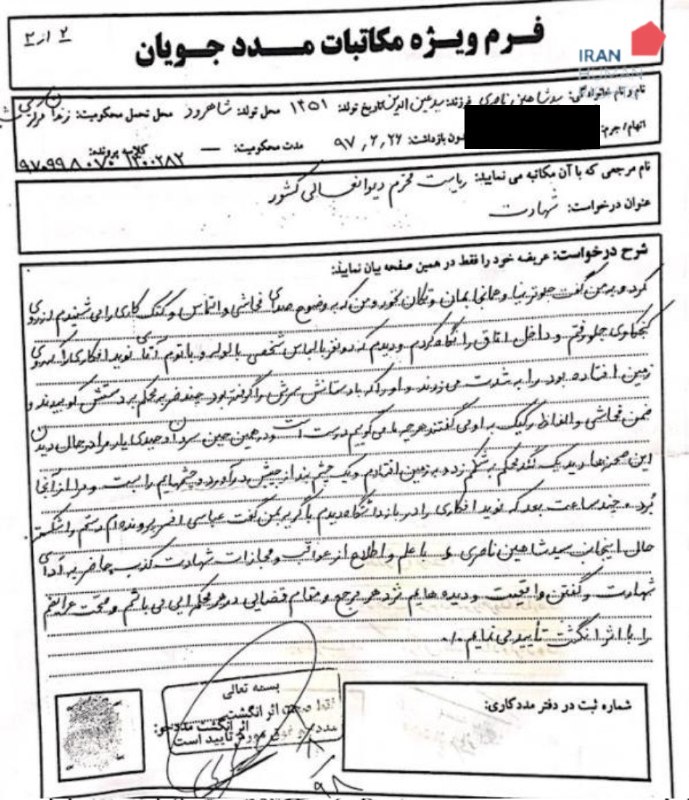 ۲ از ۲
فرم ویژه مکاتبات مدد جویان
IRAN
HUMAN
نام و نام خانوادگی: سید شاهین ناصری فرزند: سید عین الدین تاریخ تولد: ۱۳۵۱ محل تولد: شاهرود محل تحمل محکومیت: زندان مرکزی
اتهام/جرم: بازداشت: ۹۷,۶,۲۶ مدت محکومیت: — کلاسه پرونده: ۹۷۰۹۹۸۰۷۰۷۱۳۰۰۲۸۲
نام مرجعی که با آن مکاتبه می نمایید: ریاست محترم دیوانعالی کشور
عنوان درخواست: شهادت
شرح درخواست: عریضه خود را فقط در همین صفحه بیان نمایید:
کرد و به من گفت جلوتر نیا و همانجا بمان و تکان نخور و من که به وضوح صدای فحاشی و التماس و کتک کاری را می شنیدم از روی
کنجکاوی جلو رفتم و داخل اتاق را نگاه کردم و دیدم که دو نفر با لباس شخصی با لوله و باتوم آقای نوید افکاری را که روی
زمین افتاده بود را به شدت می زدند و او را که با دستانش سرش را گرفته بود چند ضربه محکم به دستش کوبیدند و
ضمن فحاشی و الفاظ رکیک به او می گفتند هر چه ما می گوییم درست است و در همین حین سروان وحیدی یار مرا در حال دیدن
این صحنه ها دید یک لگد محکم به شکم زد و به زمین افتادم و یک چشم بند از جیبش درآورد و چشمهایم را بست و مرا از آنجا
بُرد و چند ساعت بعد که نوید افکاری را در بازداشتگاه دیدم با گریه به من گفت عباسی افسر پرونده ام دستم را شکسته
حال اینجانب سید شاهین ناصری با علم و اطلاع از عواقب و مجازات شهادت کذب حاضر به ادای
شهادت و گفتن واقعیت و دیده هایم نزد هر مرجع و مقام قضایی در هر محکمه ایی می باشم و صحت عرایضم
را با اثر انگشت تأیید می نمایم.
شماره ثبت در دفتر مددکاری:
بسمه تعالی
اثر انگشت
اثر انگشت مددجو:
مورد تایید است
۹۸